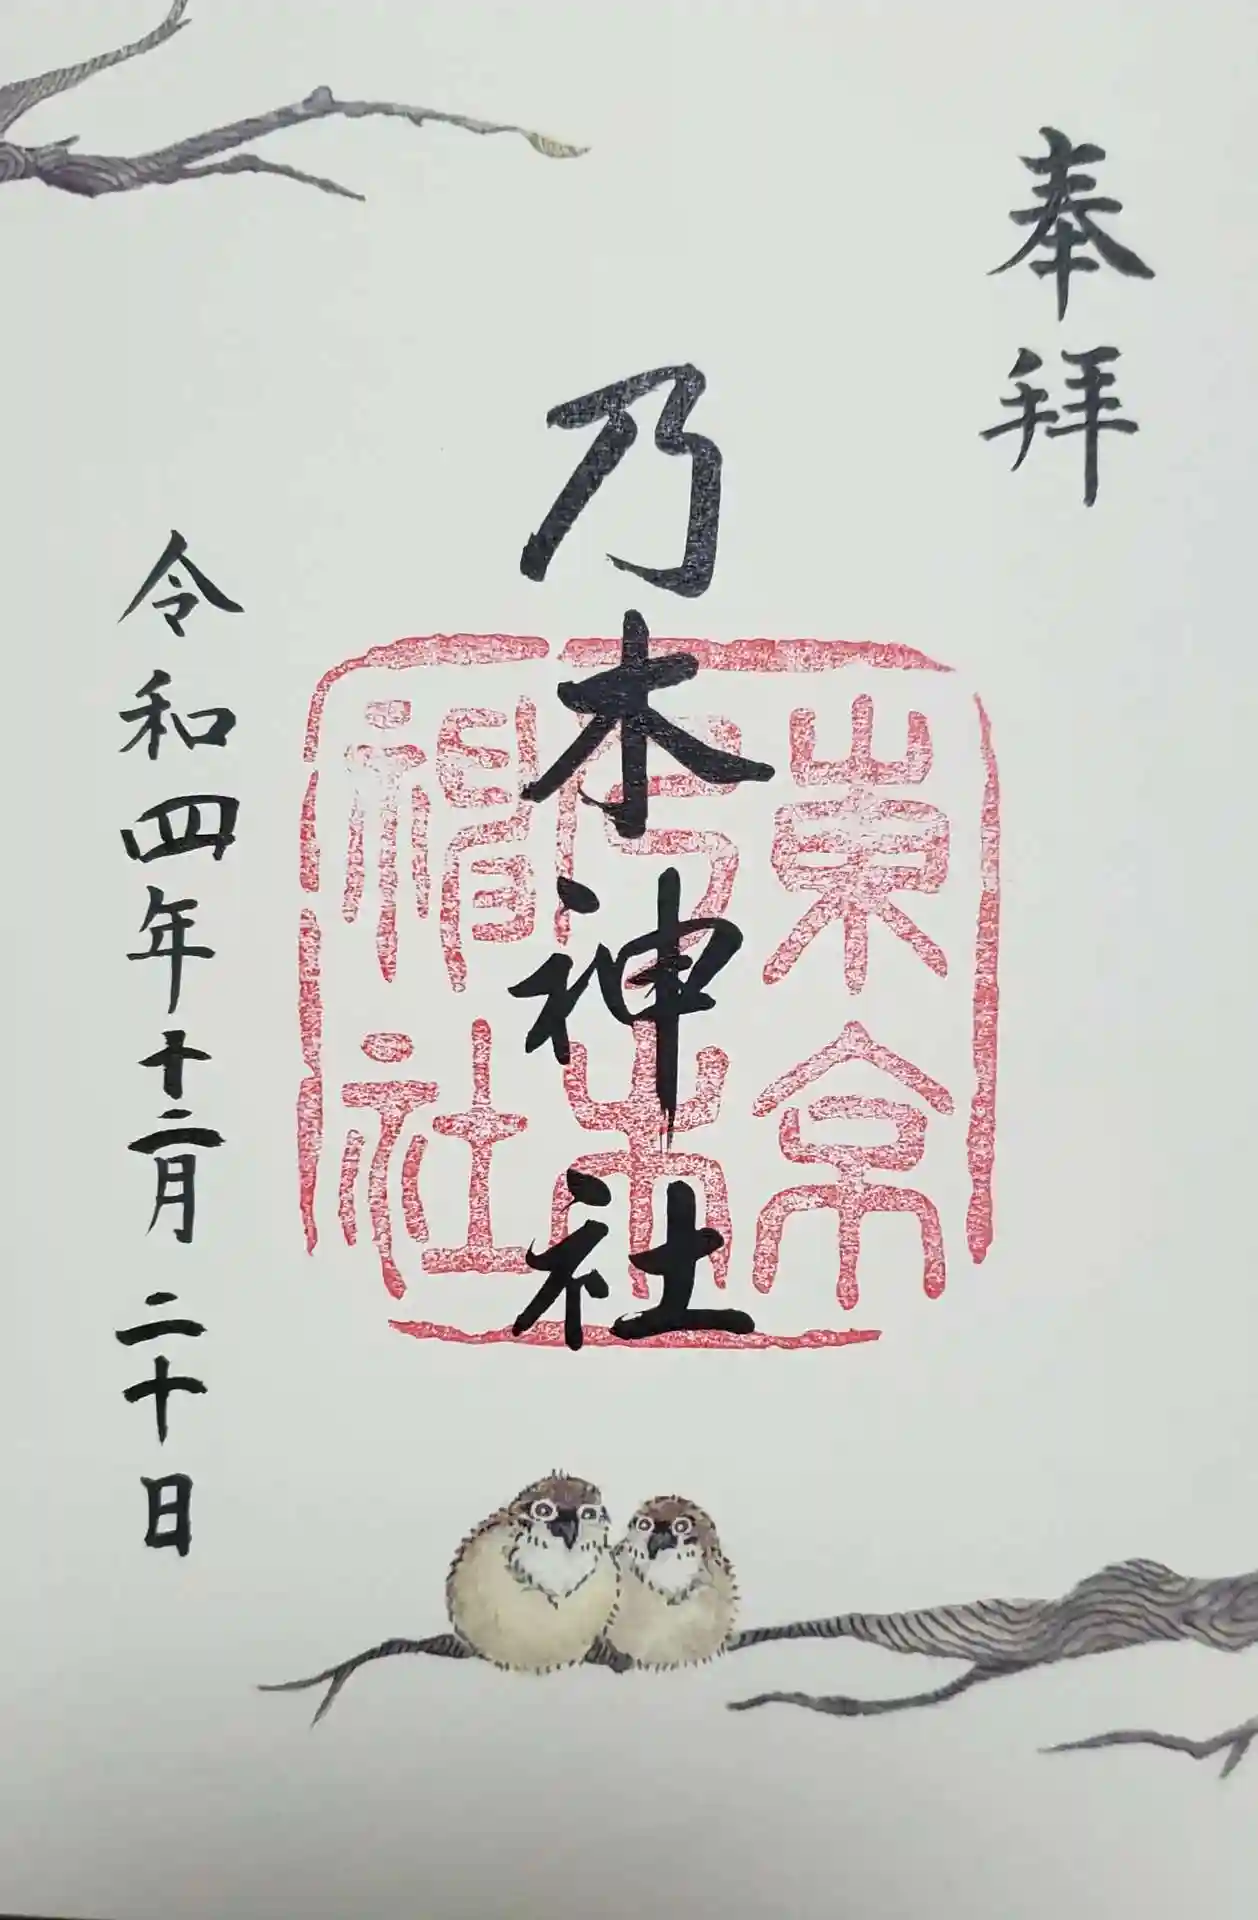 奉拝
乃木神社
令和四年十二月二十日
東京
乃木
神社